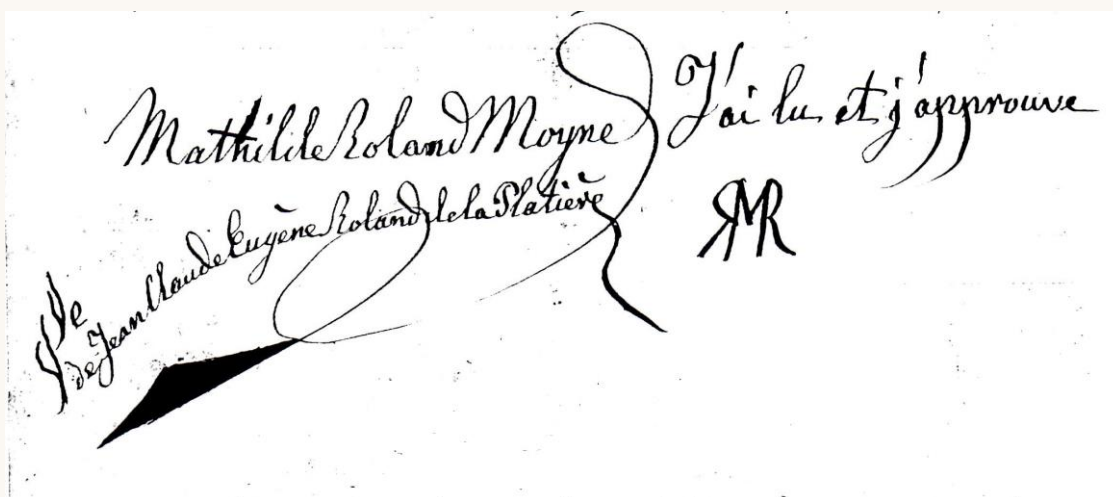 Mathilde Roland Moyne
J'ai lu et j'approuve
Vve de Jean Claude Eugène Roland de la Platière
RMR